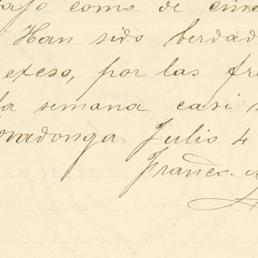 como de cinc
Han sido berdad
exeso, por las fre
la semana casi
ovadonga Julio 4
Franc.